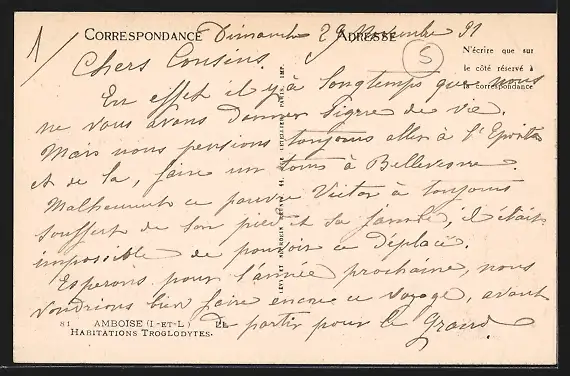 1/ CORRESPONDANCE Dimanche 29 Novembre 31
ADRESSE
5
N'écrire que sur
le côté réservé à
la correspondance
Chers Cousins
En effet il y à longtemps que nous
ne vous avons donner signe de vie.
Mais nous pensions toujours aller à l'
et de la, faire un tour à Bellevesvre.
Malheureut ce pauvre Victor à toujours
souffert de son pied et sa jambe, il était
impossible de pouvoir ce déplacé.
Esperons pour l'année prochaine, nous
voudrions bien faire encore ce voyage, avant
de partir pour le Grand.
81 AMBOISE (I-ET-L) LL
HABITATIONS TROGLODYTES.
LÉVY ET NEURDEIN RÉUNIS, 44, RUE LETELLIER, PARIS. IMP.